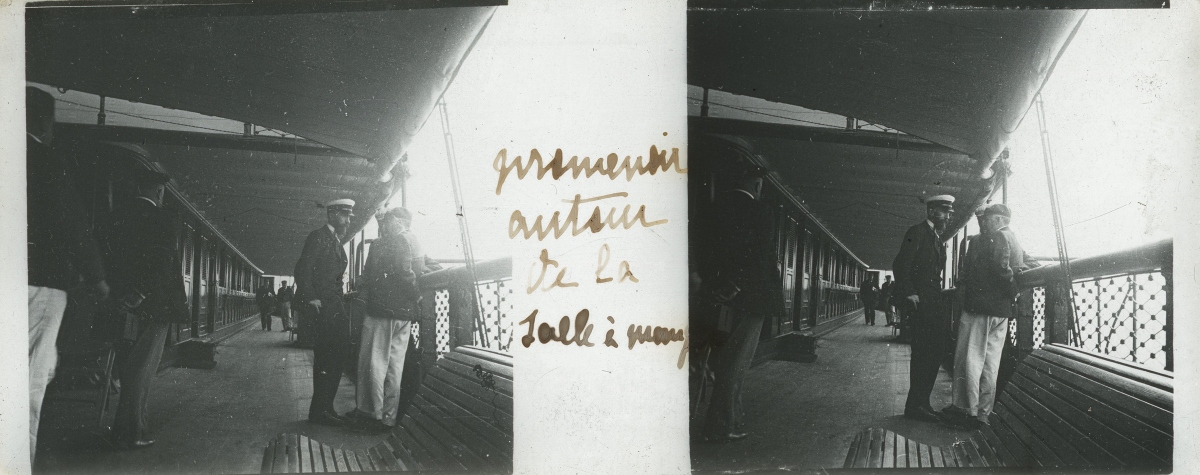 promenoir
autour
de la
Salle à mang